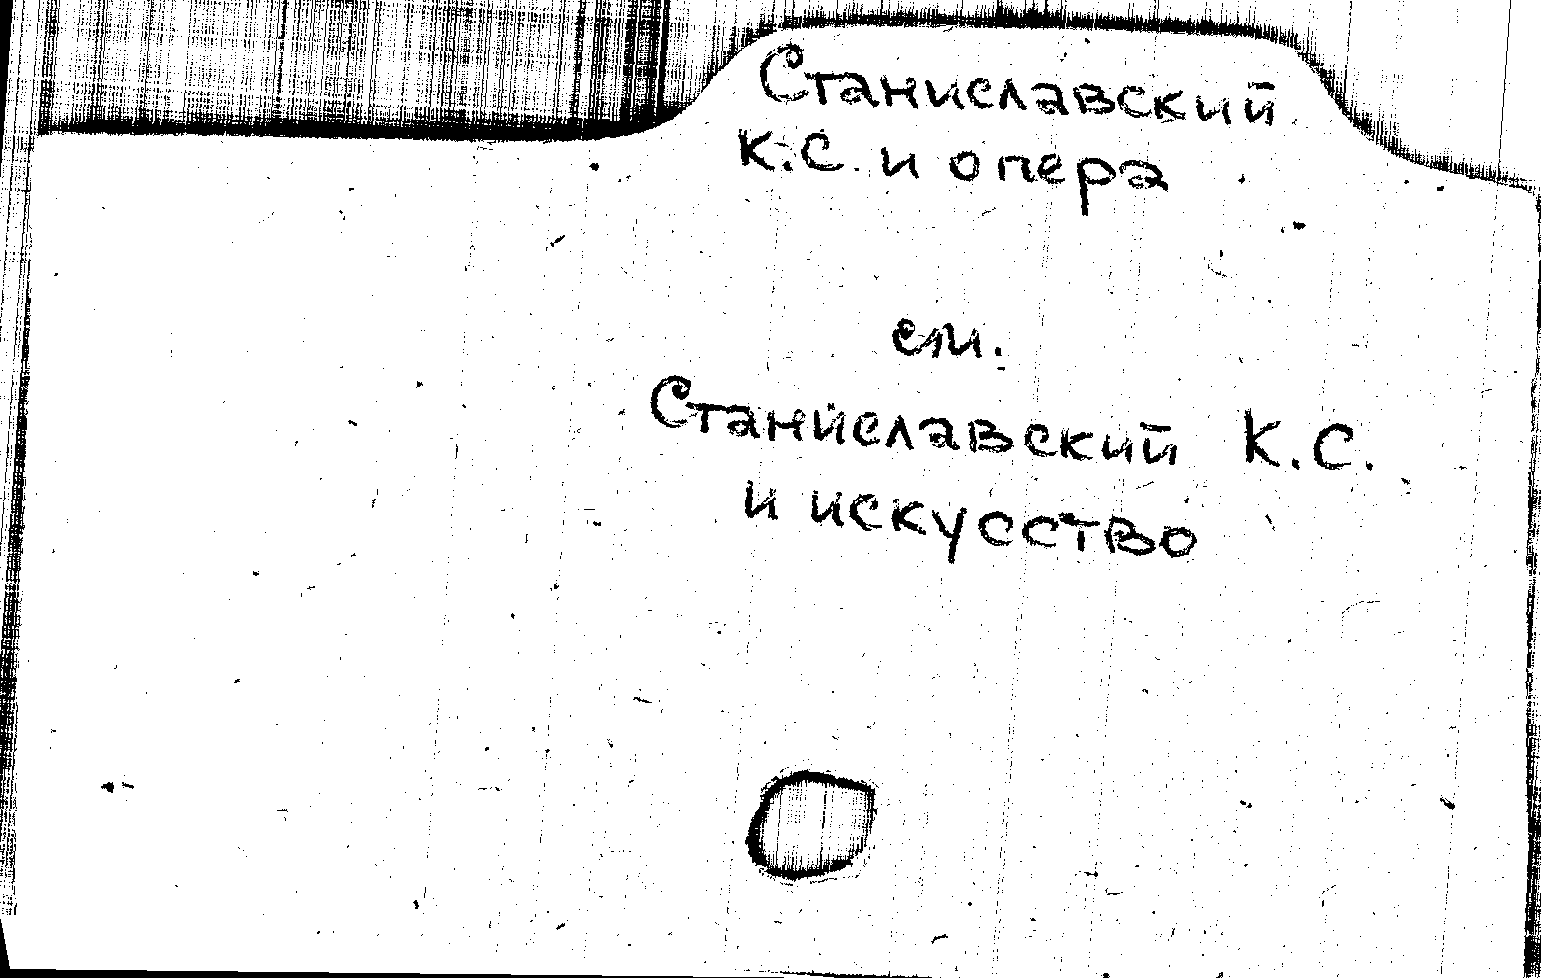 Станиславский
К.С. и опера
см.
Станиславский К.С.
и искусство